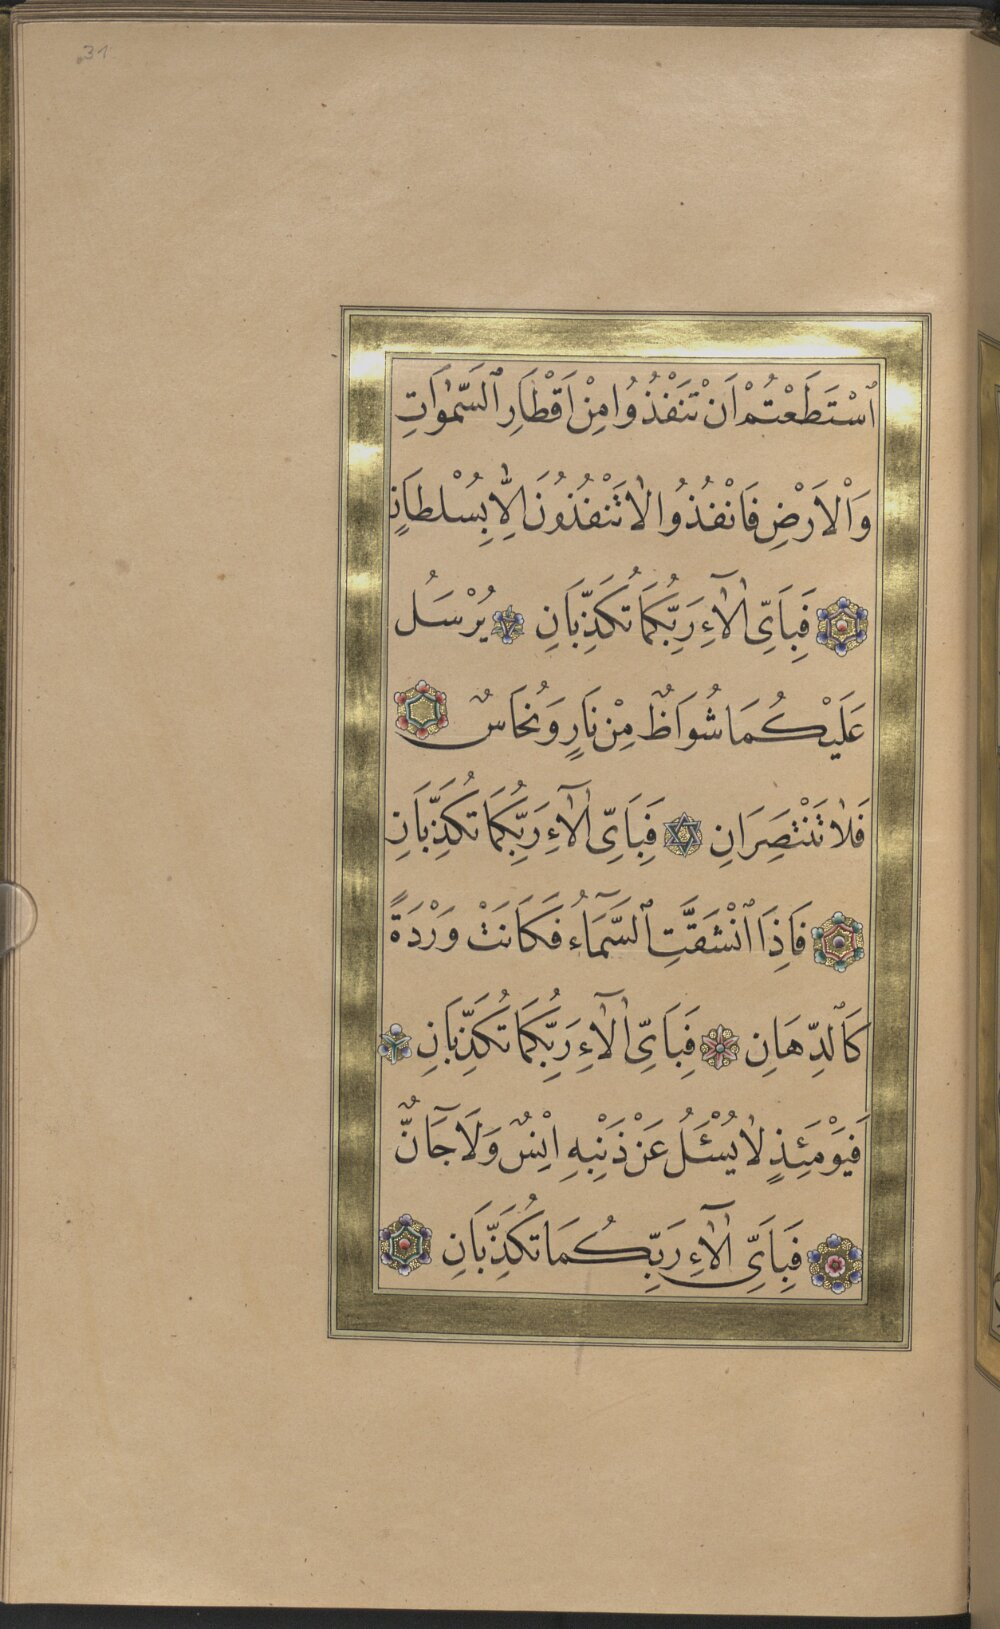 31
ٱسْتَطَعْتُمْ اَنْ تَنْفُذُوا مِنْ اَقْطَارِ ٱلسَّمٰوَاتِ
وَٱلْاَرْضِ فَانْفُذُوا لَاتَنْفُذُونَ اِلَّا بِسُلْطَانٍ
فَبِاَىِّ اٰلَٓاءِ رَبِّكُمَا تُكَذِّبَانِ يُرْسَلُ
عَلَيْكُمَا شُوَاظٌ مِنْ نَارٍ وَنُحَاسٌ
فَلَا تَنْتَصِرَانِ فَبِاَىِّ اٰلَٓاءِ رَبِّكُمَا تُكَذِّبَانِ
فَاِذَا ٱنْشَقَّتِ ٱلسَّمَٓاءُ فَكَانَتْ وَرْدَةً
كَٱلدِّهَانِ فَبِاَىِّ اٰلَٓاءِ رَبِّكُمَا تُكَذِّبَانِ
فَيَوْمَئِذٍ لَا يُسْئَلُ عَنْ ذَنْبِهِ اِنْسٌ وَلَا جَٓانٌّ
فَبِاَىِّ اٰلَٓاءِ رَبِّكُمَا تُكَذِّبَانِ